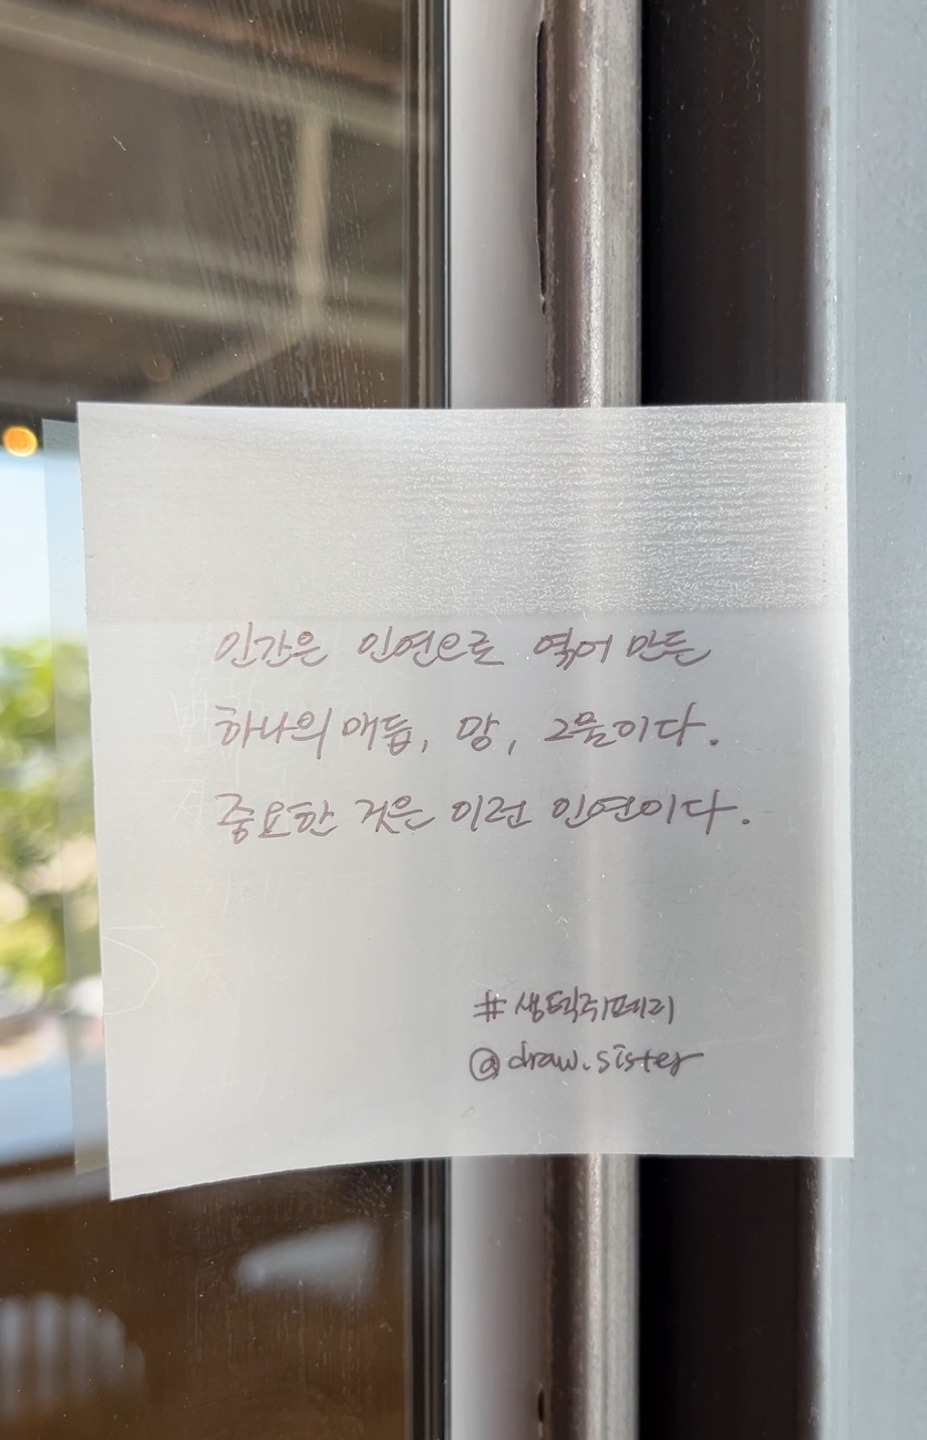 인간은 인연으로 엮어 만든
하나의 매듭, 망, 그물이다.
중요한 것은 이런 인연이다.
#생텍쥐페리
@draw.sister